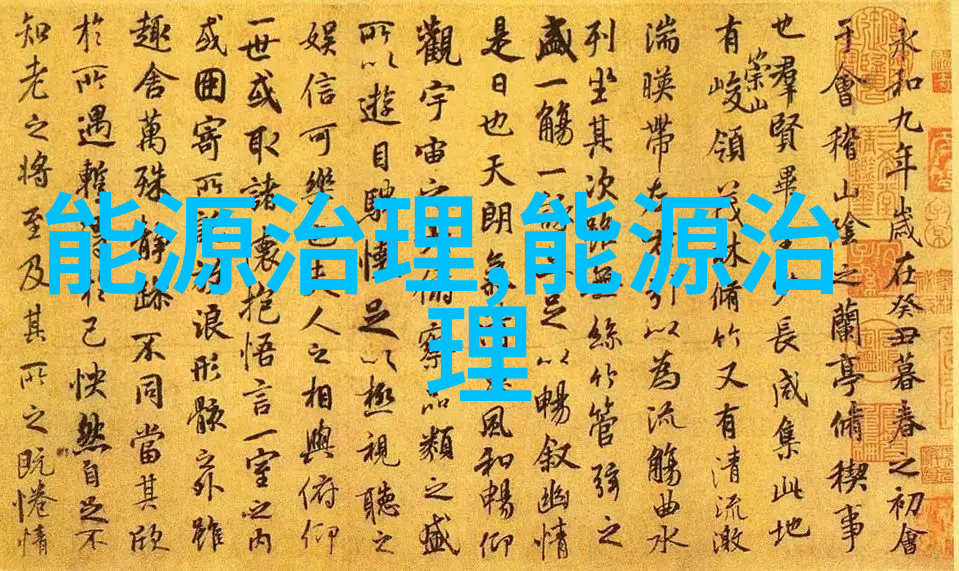 永和九年歲在癸丑暮春之初會
于會稽山陰之蘭亭脩稧事
也羣賢畢至少長咸集此地
有崇山峻領茂林脩竹又有清流激
湍暎帶左右引以為流觴曲水
列坐其次雖無絲竹管弦之
盛一觴一詠亦足以暢叙幽情
是日也天朗氣清惠風和暢仰
觀宇宙之大俯察品類之盛
所以遊目騁懷足以極視聽之
娛信可樂也夫人之相與俯仰
一世或取諸懷抱悟言一室之內
或因寄所託放浪形骸之外雖
趣舍萬殊靜躁不同當其欣
於所遇蹔得於己怏然自足不
知老之將至及其所之既惓情
能源治理,能源治
理